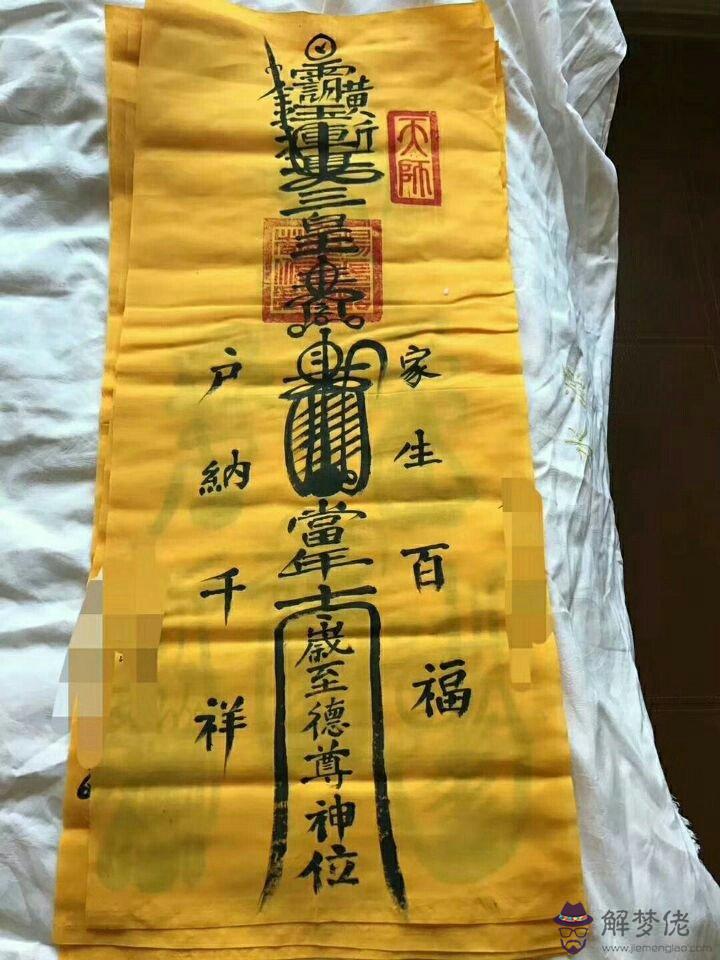 天師
家生百福
三皇
當年太歲至德尊神位
户納千祥
解梦佬
www.jiemenglao.com